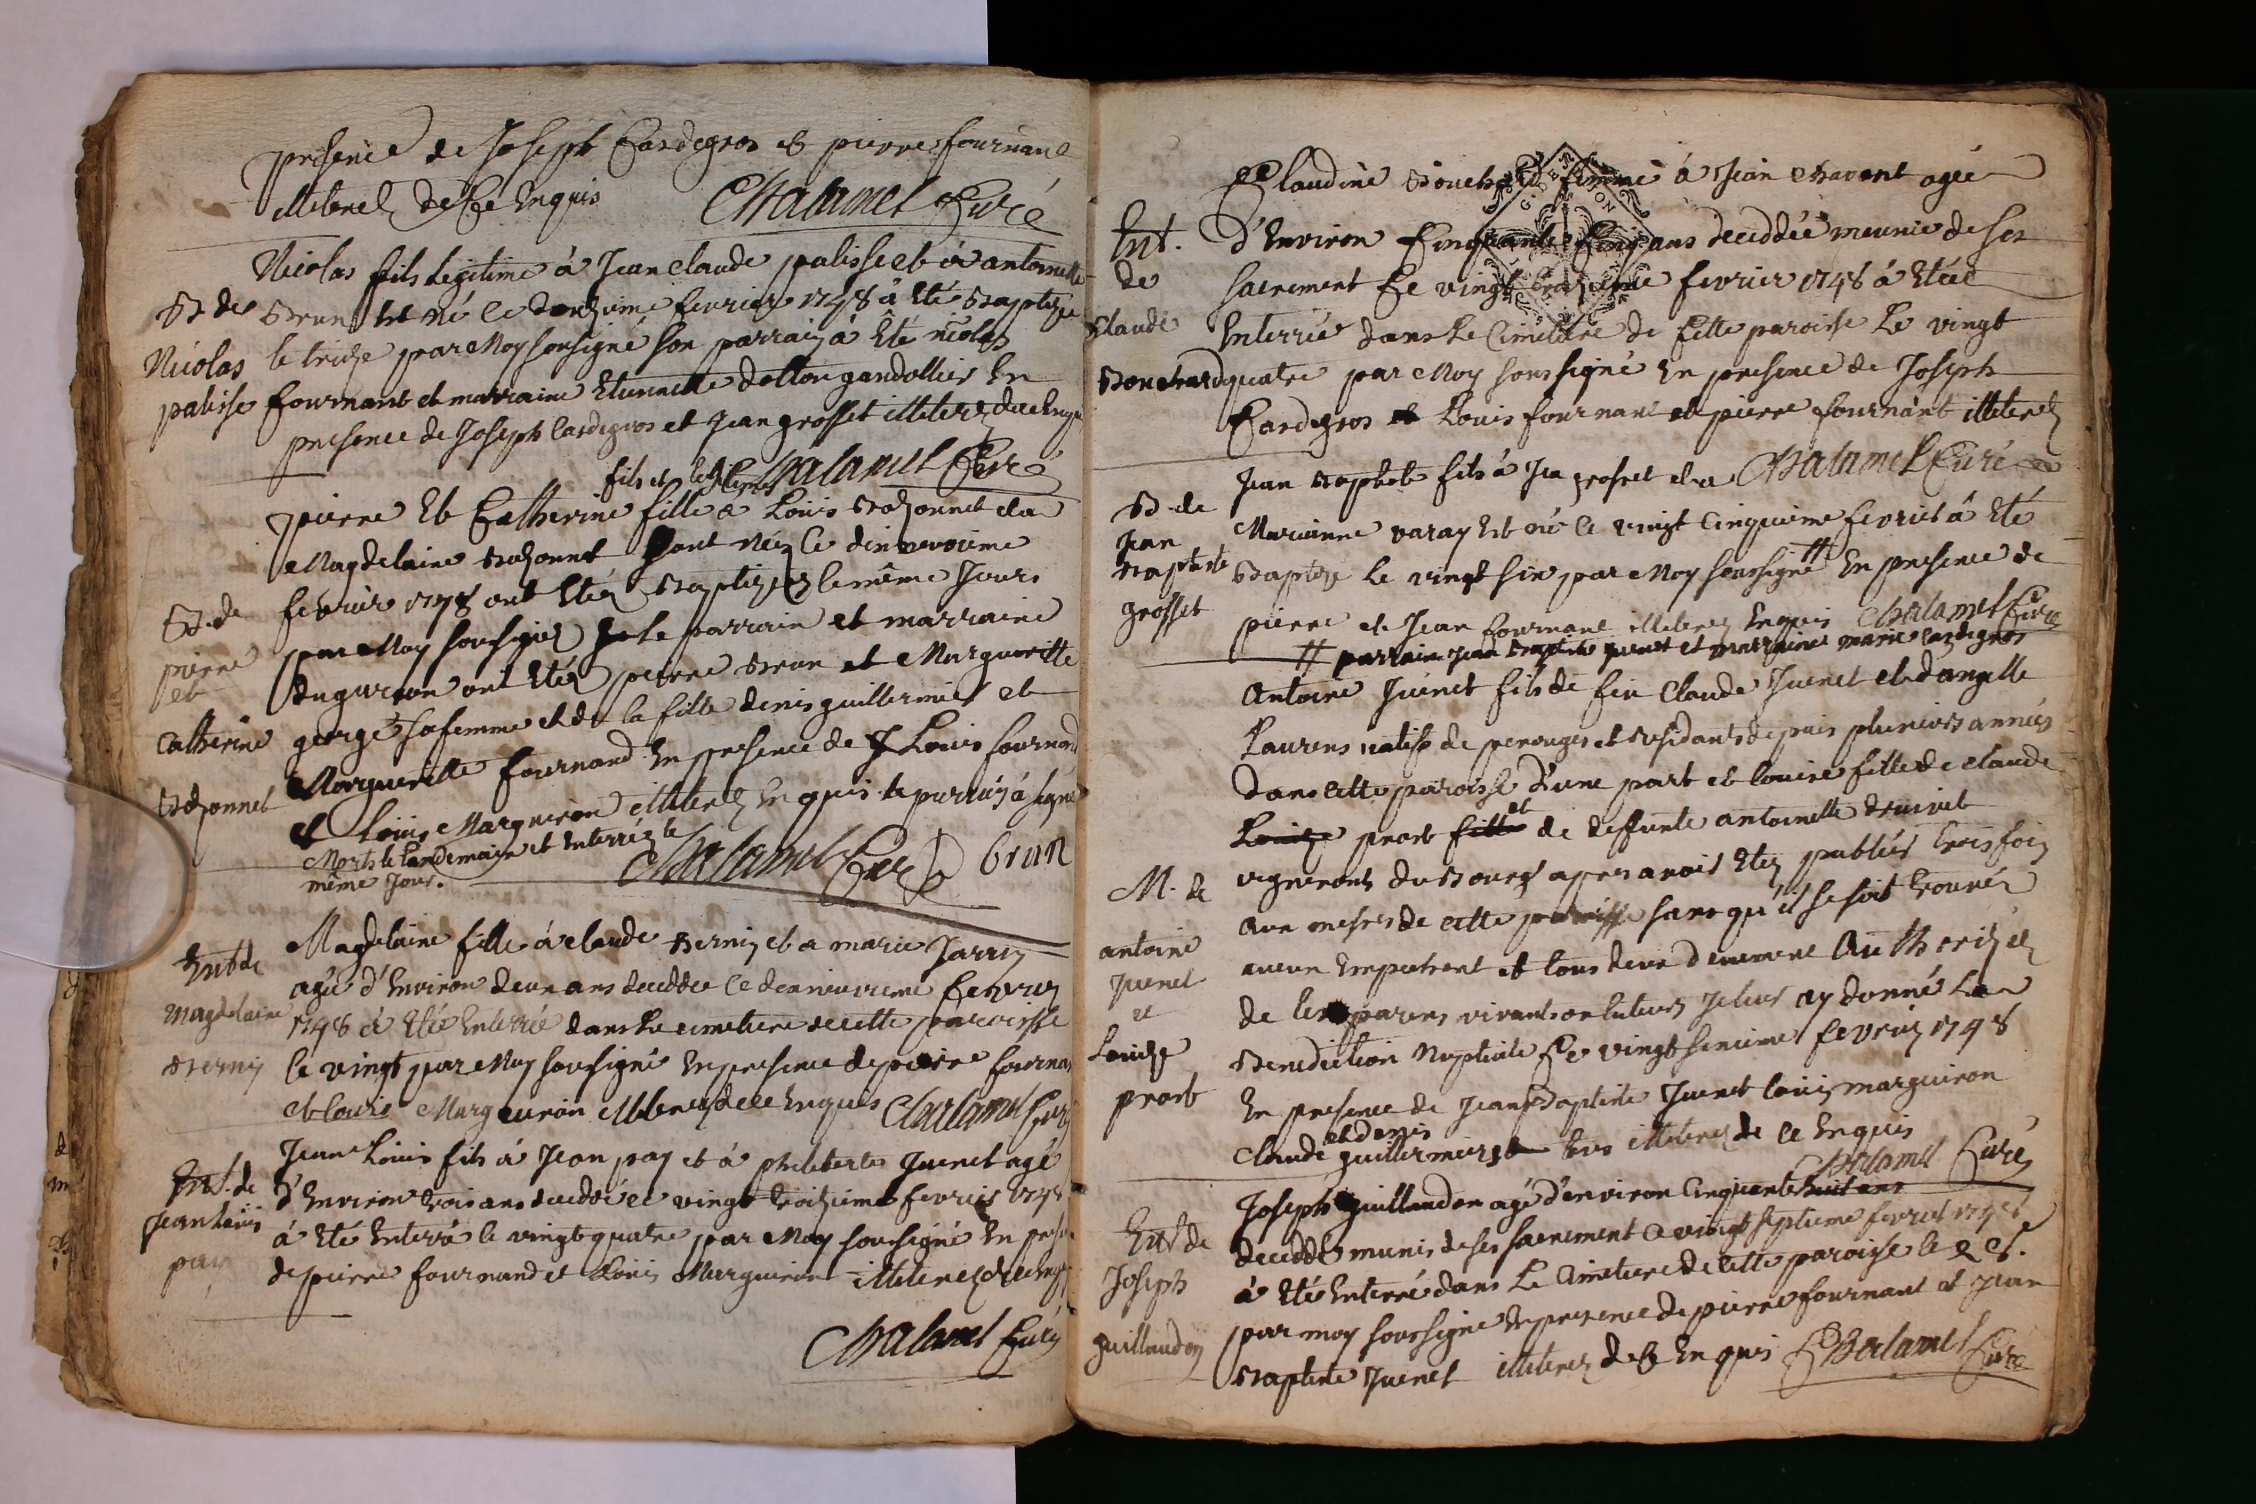 presence de Joseph Cardegros et pierre fournant
illiterez de Ce Enquis Chalamel Curé
Nicolas fils legitime à Jean claude palisse et à antoinette
Bt de
Nicolas
palisse
Brun Est né le douzieme fevrier 1748 à Eté Baptizé
le treize par Moy sousigné son parrain à Eté nicolas
fournant et marraine Etiennette gandollier En
presence de Joseph Cardegros et Jean grosset illiterez
Chalamel Curé
fils et
pierre Et Catherine fille a Louis Bozonnet et a
Magdelaine Bozonnet sont Néz le dixneuvieme
Bt de
pierre
et
Catherine
Bozonnet
fevrier 1748 ont Etéz Baptizez le même Jour
par Moy sousigné le parrain et marraine
du garcon ont Etéz pierre Brun et Margueritte
george sa femme et de la fille denis guillermier et
Margueritte fournand En presence de Louis fournand
et Louis Marguiron illiterez Enquis le parrain à signé
Morts le landemain et Enterréz le
même Jour.
Chalamel Curé brun
Ent de
Magdelaine
Berniz
Magdelaine fille à claude Berniz et a marie Jarrin
agée d'Environ deux ans deceddée le dixneuvieme fevrier
1748 à Etée Enterrée dans le cimetiere de cette paroisse
le vingt par Moy sousigné En presence de pierre
et Louis Marguiron illiterez de ce Enquis Chalamel
Ent. de
Jean Louis
pay
Jean Louis fils à Jean pay et à philiberte Juenet agé
d'Environ trois ans deceddé le vingt troizieme fevrier 1748
à Eté Enterré le vingt quatre par Moy sousigné En
de pierre fournand et Louis Marguiron illiterez
Chalamel Curé
Claudine Bouchard femme à Jean chavent agée
Ent.
de
Claude
Bouchard
d'Environ Cinquante Cinq ans deceddée meunie de ses
sacrement Le vingt troizieme fevrier 1748 à Etée
Enterrée dans le Cimetiere de Cette paroisse Le vingt
quatre par Moy soussigné En presence de Joseph
Cardegros et Louis fournant et pierre fournant illiterez
Chalamel Curé
Bt de
Jean
Baptiste
grosset
Jean Baptiste fils à Jea grosset et a
Marianne varay Est né le vingt Cinquieme fevrier à Eté
Baptize le vingt six par Moy soussigné # En presence de
pierre et Jean fournant illiterez Enquis Chalamel Curé
# parrain Jean Baptiste Juenet et marraine marie Cardegros
Antoine Juenet fils de feu Claude Juenet et d'angelle
Laurens natif de perouges et residant depuis plusieurs années
dans cette paroisse d'une part et louise fille de claude
Louize prost fille et de deffunte antoinette
M. de
antoine
Juenet
et
Louize
prost
vignerons du Bourg apres avoir Etez publiés trois fois
aux messes de cette paroisse sans qu'il se soit trouvéz
aucun Empechement et tous deux duement Autherizés
de leur parens vivants ou tuteurs Je leur ay donné La
Benediction Nuptiale Le vingt sixieme fevrier 1748
En presence de Jean Baptiste Juenet louis marguiron
et denis
Claude guillermier tous illiterez de ce Enquis
Chalamel Curé
Ent de
Joseph
guillaudon
Joseph guillaudon agé d'environ Cinquante huit ans
deceddé munis de ses sacrement le vingt septieme fevrier 1748
à Eté Enterré dans le Cimetiere de Cette paroisse le 28.
par moy soussigné En presence de pierre fournant et Jean
Baptiste Juenet illiterez de Ce Enquis Chalamel Curé